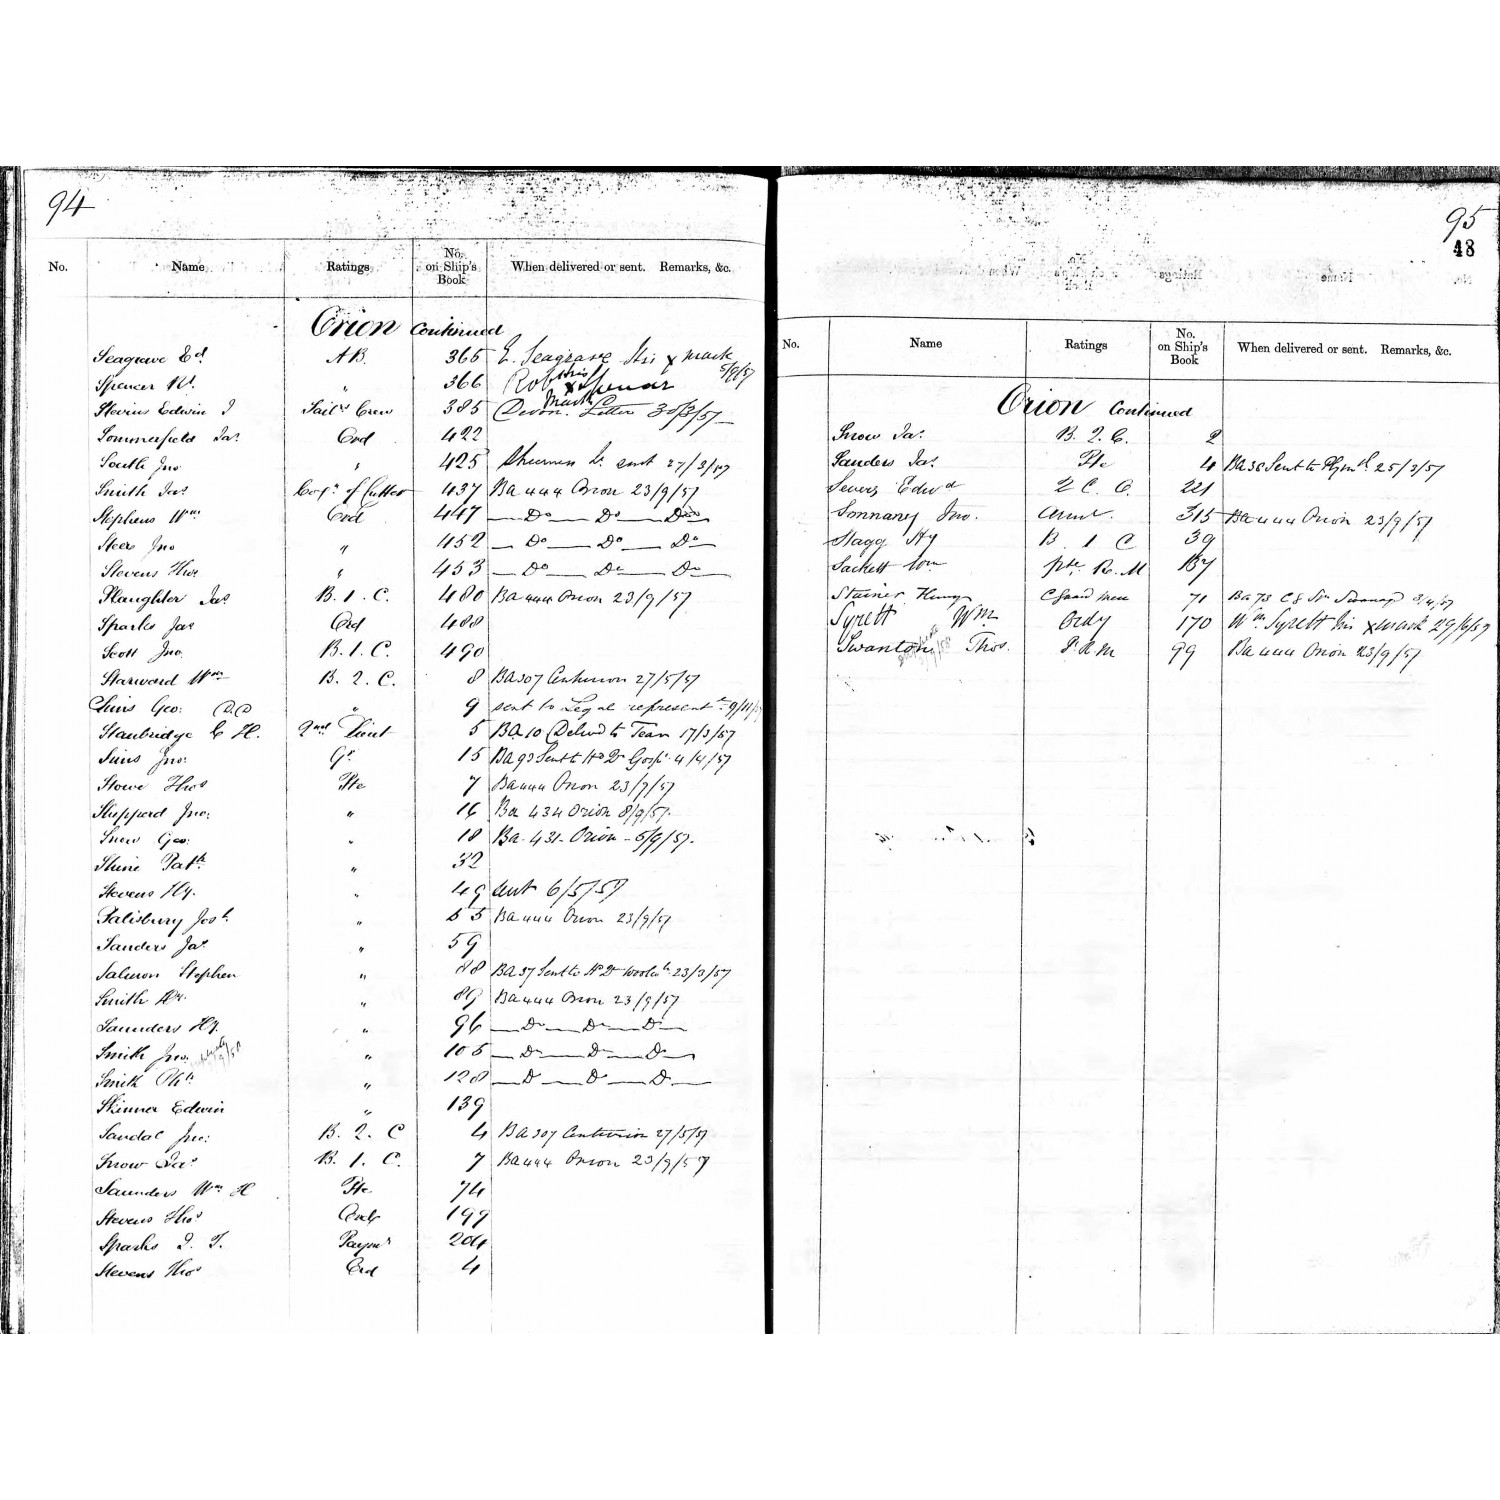 94
No. Name Ratings No. on Ship's Book When delivered or sent. Remarks, &c.
Orion Continued
Seagrave Ed. AB. 365 E. Seagrave his x mark 5/9/57
Spencer Rt. " 366 Robt his x Spencer mark
Stevens Edwin J Sail's Crew 385 Devon. Letter 30/3/57
Sommerfield Jas. Ord 422
South Jno " 425 sent 27/3/57
Smith Jas Cox'n of Cutter 437 Ba 444 Orion 23/9/57
Stephens Wm Ord 447 — Do — Do — Do
Steer Jno " 452 — Do — Do — Do
Stevens Thos " 453 — Do — Do — Do
Slaughter Jas. B. 1. C. 480 Ba 444 Orion 23/9/57
Sparks Jas Ord 488
Scott Jno. B. 1. C. 490
Starward Wm B. 2. C. 8 Ba 307 Centurion 27/5/57
Sims Geo: D.D " 9 sent to Legal represent
Stanbridge C H. 2nd Lieut 5 BA 10 Deliv'd to Team 17/3/57
Sims Jno: Gr 15 Ba 93 Sent to Hd Qr Gosp. 4/4/57
Stowe Thos Pte 7 Ba 444 Orion 23/9/57
Sheppard Jno: " 16 Ba 434 Orion 8/9/57.
Snow Geo: " 18 Ba. 431. Orion - 5/9/57.
Shine Patk " 32
Stevens Hy. " 49 sent 6/5/57
Salisbury Josh. " 55 Ba 444 Orion 23/9/57
Sanders Jas. " 59
Salmon Stephen " 88 BA 37 Sent to Hd Qr Woolwh. 23/3/57
Smith Hy. " 89 Ba 444 Orion 23/9/57
Saunders Hy. " 96 — Do — Do — Do
Smith Jno. " 105 — Do — Do — Do
Smith " 128 — Do — Do — Do
Skinner Edwin " 139
Sandal Jno: B. 2. C 4 Ba 307 Centurion 27/5/57
Snow Jas B. 1. C. 7 Ba 444 Orion 23/9/57
Saunders Wm H Pte 74
Stevens Thos Ordy 199
Sparks J. T. Paymr 204
Stevens Thos Ord 4
95
48
No. Name Ratings No. on Ship's Book When delivered or sent. Remarks, &c.
Orion Continued
Snow Jas. B. 2. C. 2
Sanders Jas. Pte 4 Ba 38 Sent to Plymth. 25/3/57
Severs Edwd 2 C. C. 221
Sonnaney Jno. 315 Ba 444 Orion 23/9/57
Stagg Hy B. 1 C 39
Sackett Wm pte R. M 187
Stainer Henry C Guard man 71 Ba 73 C G Stn Swanage 3/4/57
Syrett Wm Ordy 170 Wm. Syrett his x mark 29/6/59
Swanton Thos. P. R M 99 Ba 444 Orion 23/9/57